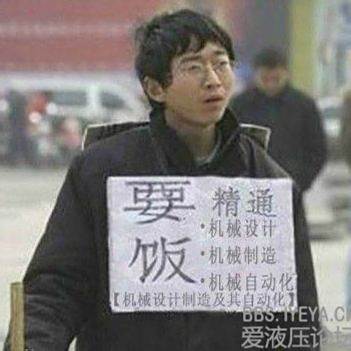 要饭
精通
·机械设计
·机械制造
·机械自动化
【机械设计制造及其自动化】
爱液压论坛